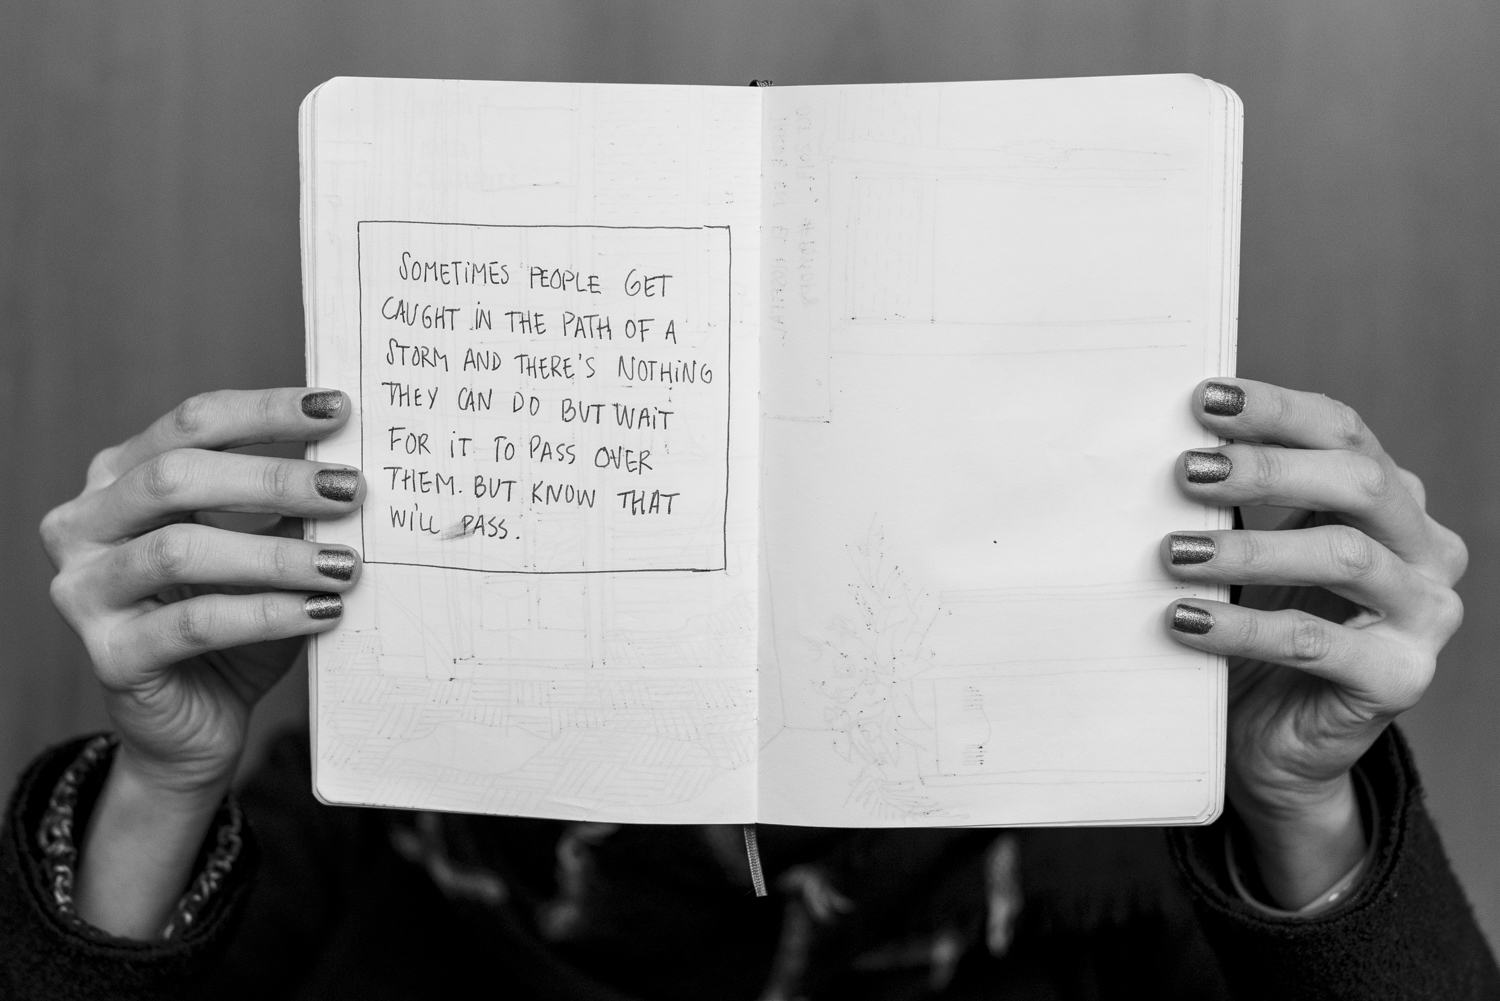 SOMETIMES PEOPLE GET
CAUGHT IN THE PATH OF A
STORM AND THERE'S NOTHING
THEY CAN DO BUT WAIT
FOR IT TO PASS OVER
THEM. BUT KNOW THAT
WILL PASS.